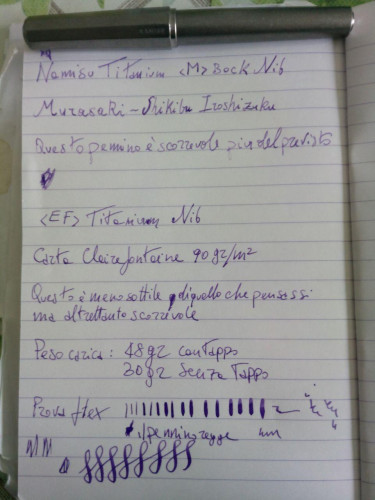 Namisu Titanium <M> Bock Nib
Murasaki-Shikibu Iroshizuku
Questo pennino è scorrevole più del previsto
<EF> Titanium Nib
Carta Clairefontaine 90gr/m²
Questo è meno sottile di quello che pensassi
ma altrettanto scorrevole
Peso carica: 48gr con Tappo
30gr senza Tappo
Prova flex
il pennino regge